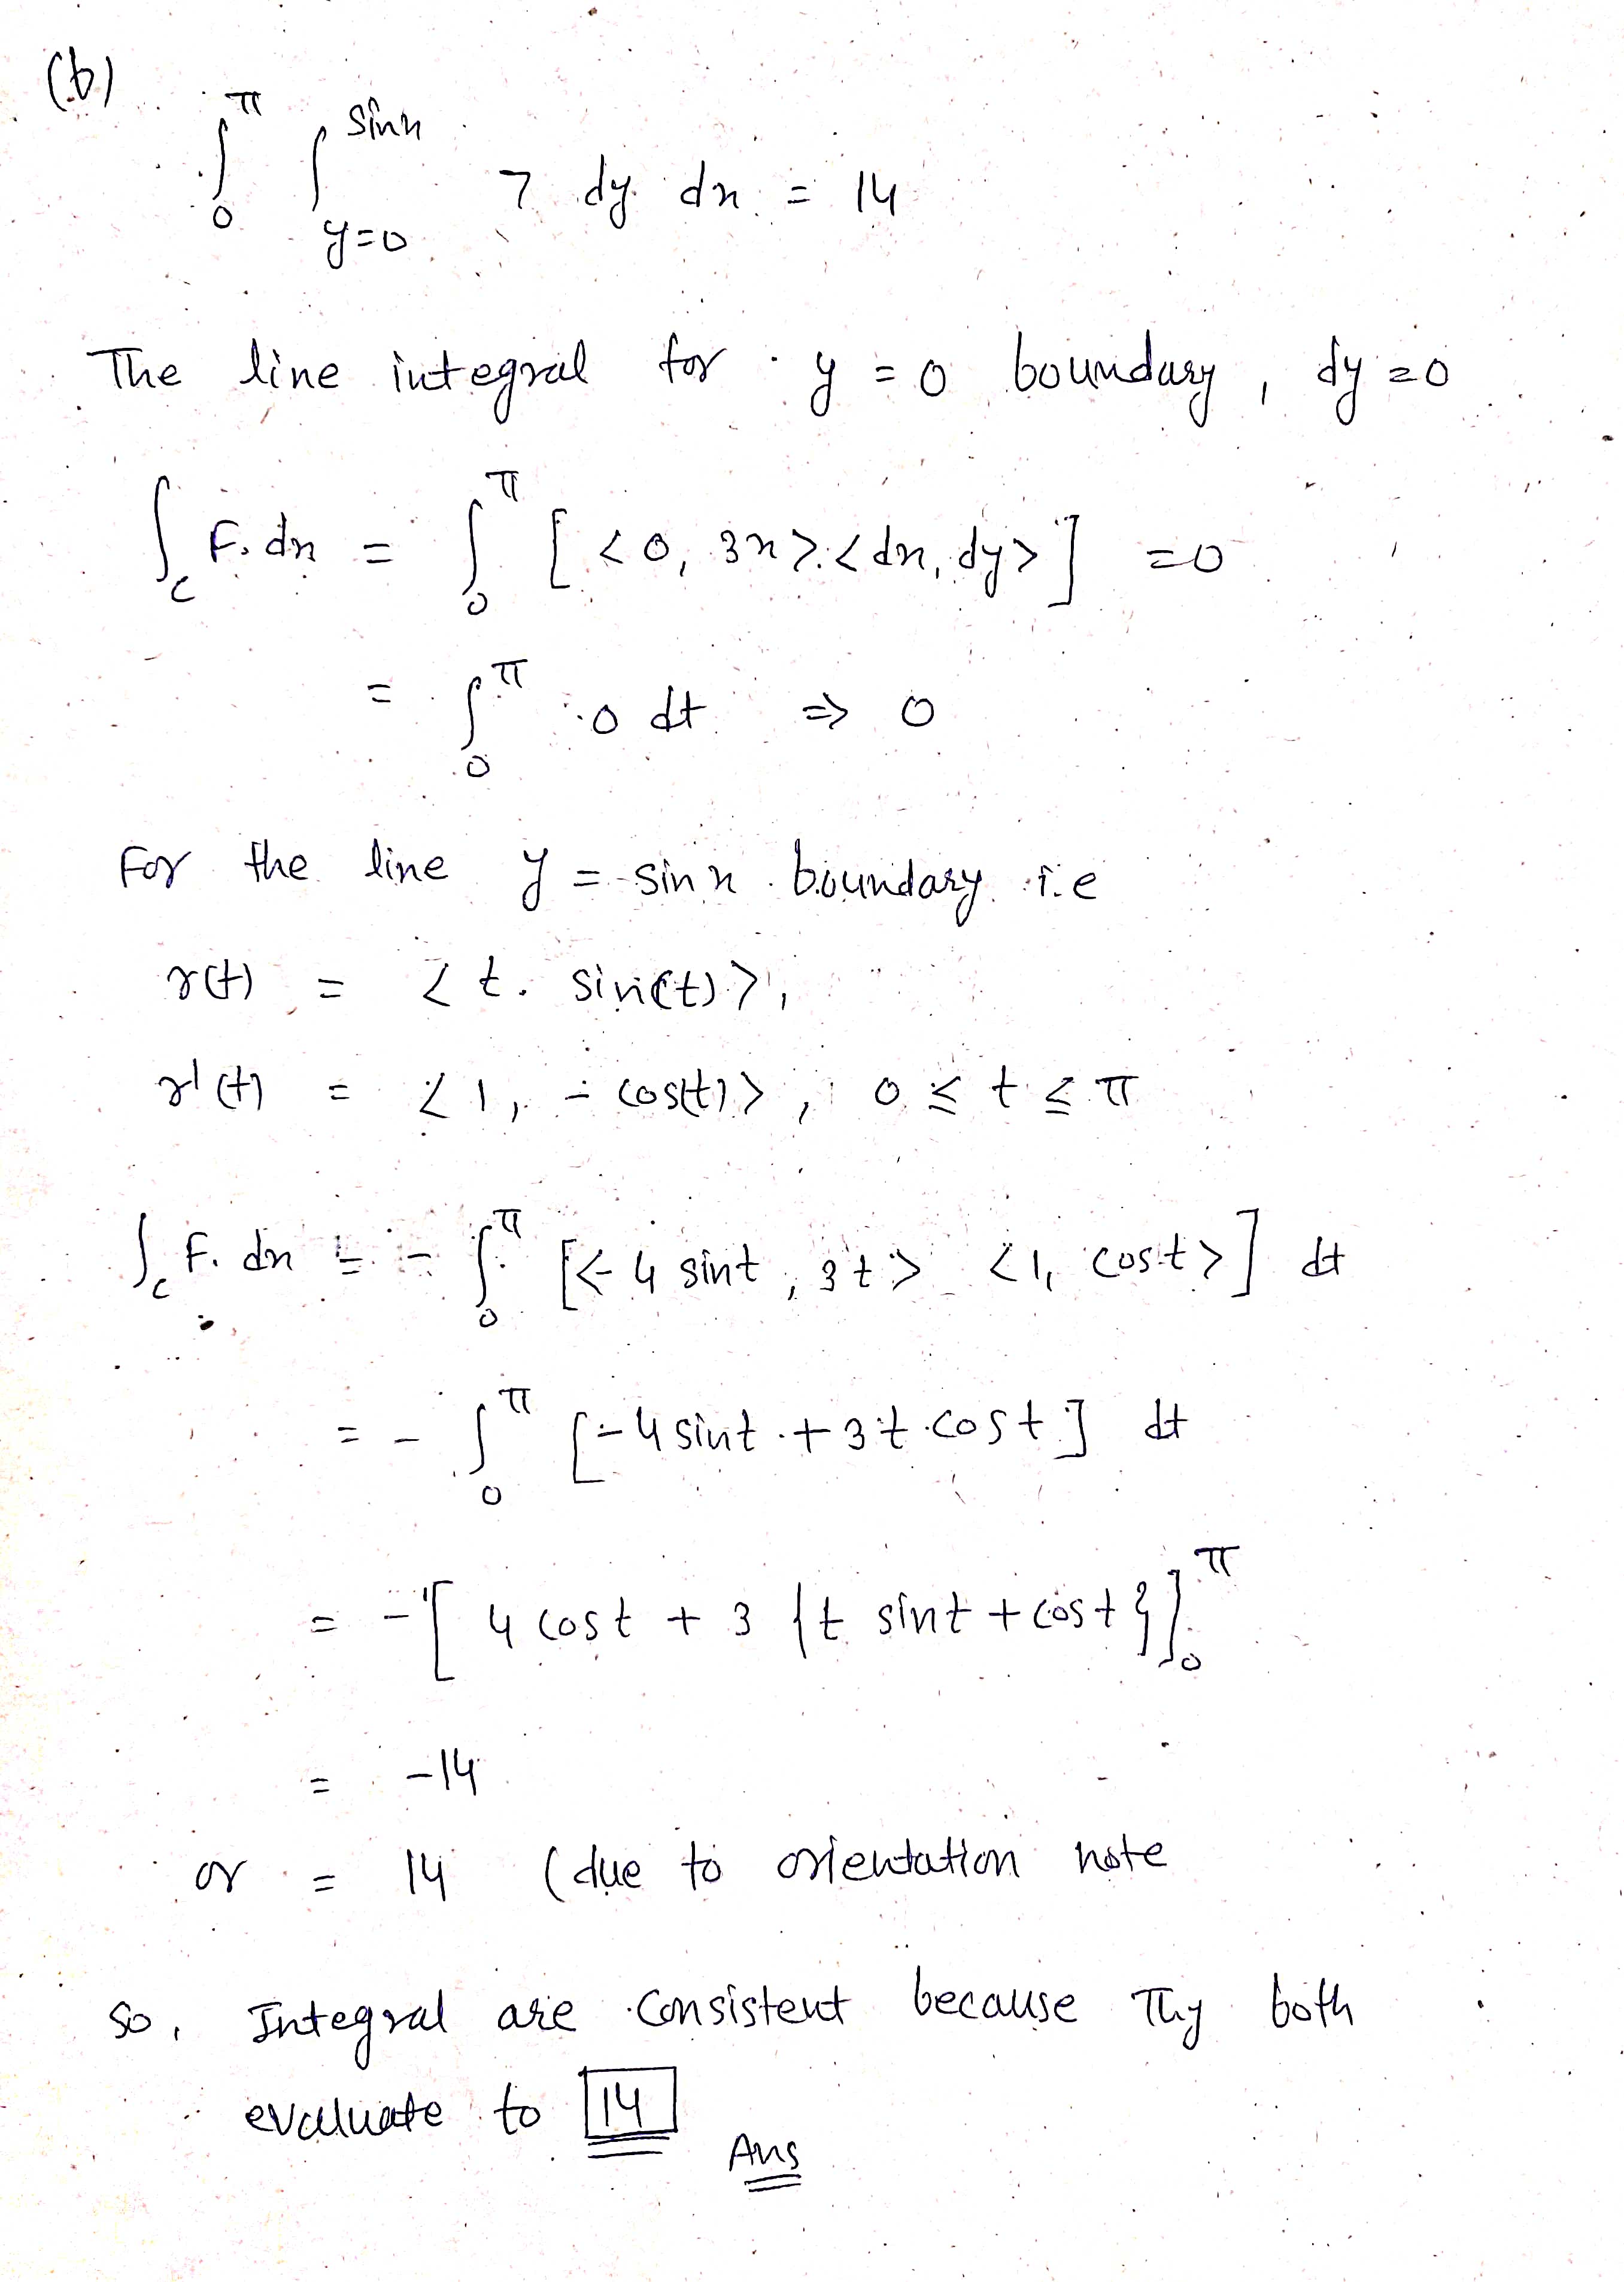 (b)
∫₀^π ∫_{y=0}^{sinx} 7 dy dx = 14
The line integral for y = 0 boundary, dy = 0
∫_c F. dx = ∫₀^π [<0, 3x>.<dx, dy>] = 0
= ∫₀^π 0 dt ⇒ 0
For the line y = sin x boundary i.e
r(t) = <t. sin(t)>,
r'(t) = <1, - cos(t)>, 0 ≤ t ≤ π
∫_c F. dx = - ∫₀^π [<-4 sint, 3t> <1, cost>] dt
= - ∫₀^π [-4 sint + 3t cost] dt
= -[4 cost + 3 {t sint + cost}]₀^π
= -14
or = 14 (due to orientation note
So, Integral are Consistent because Thy both
evaluate to 14
Ans